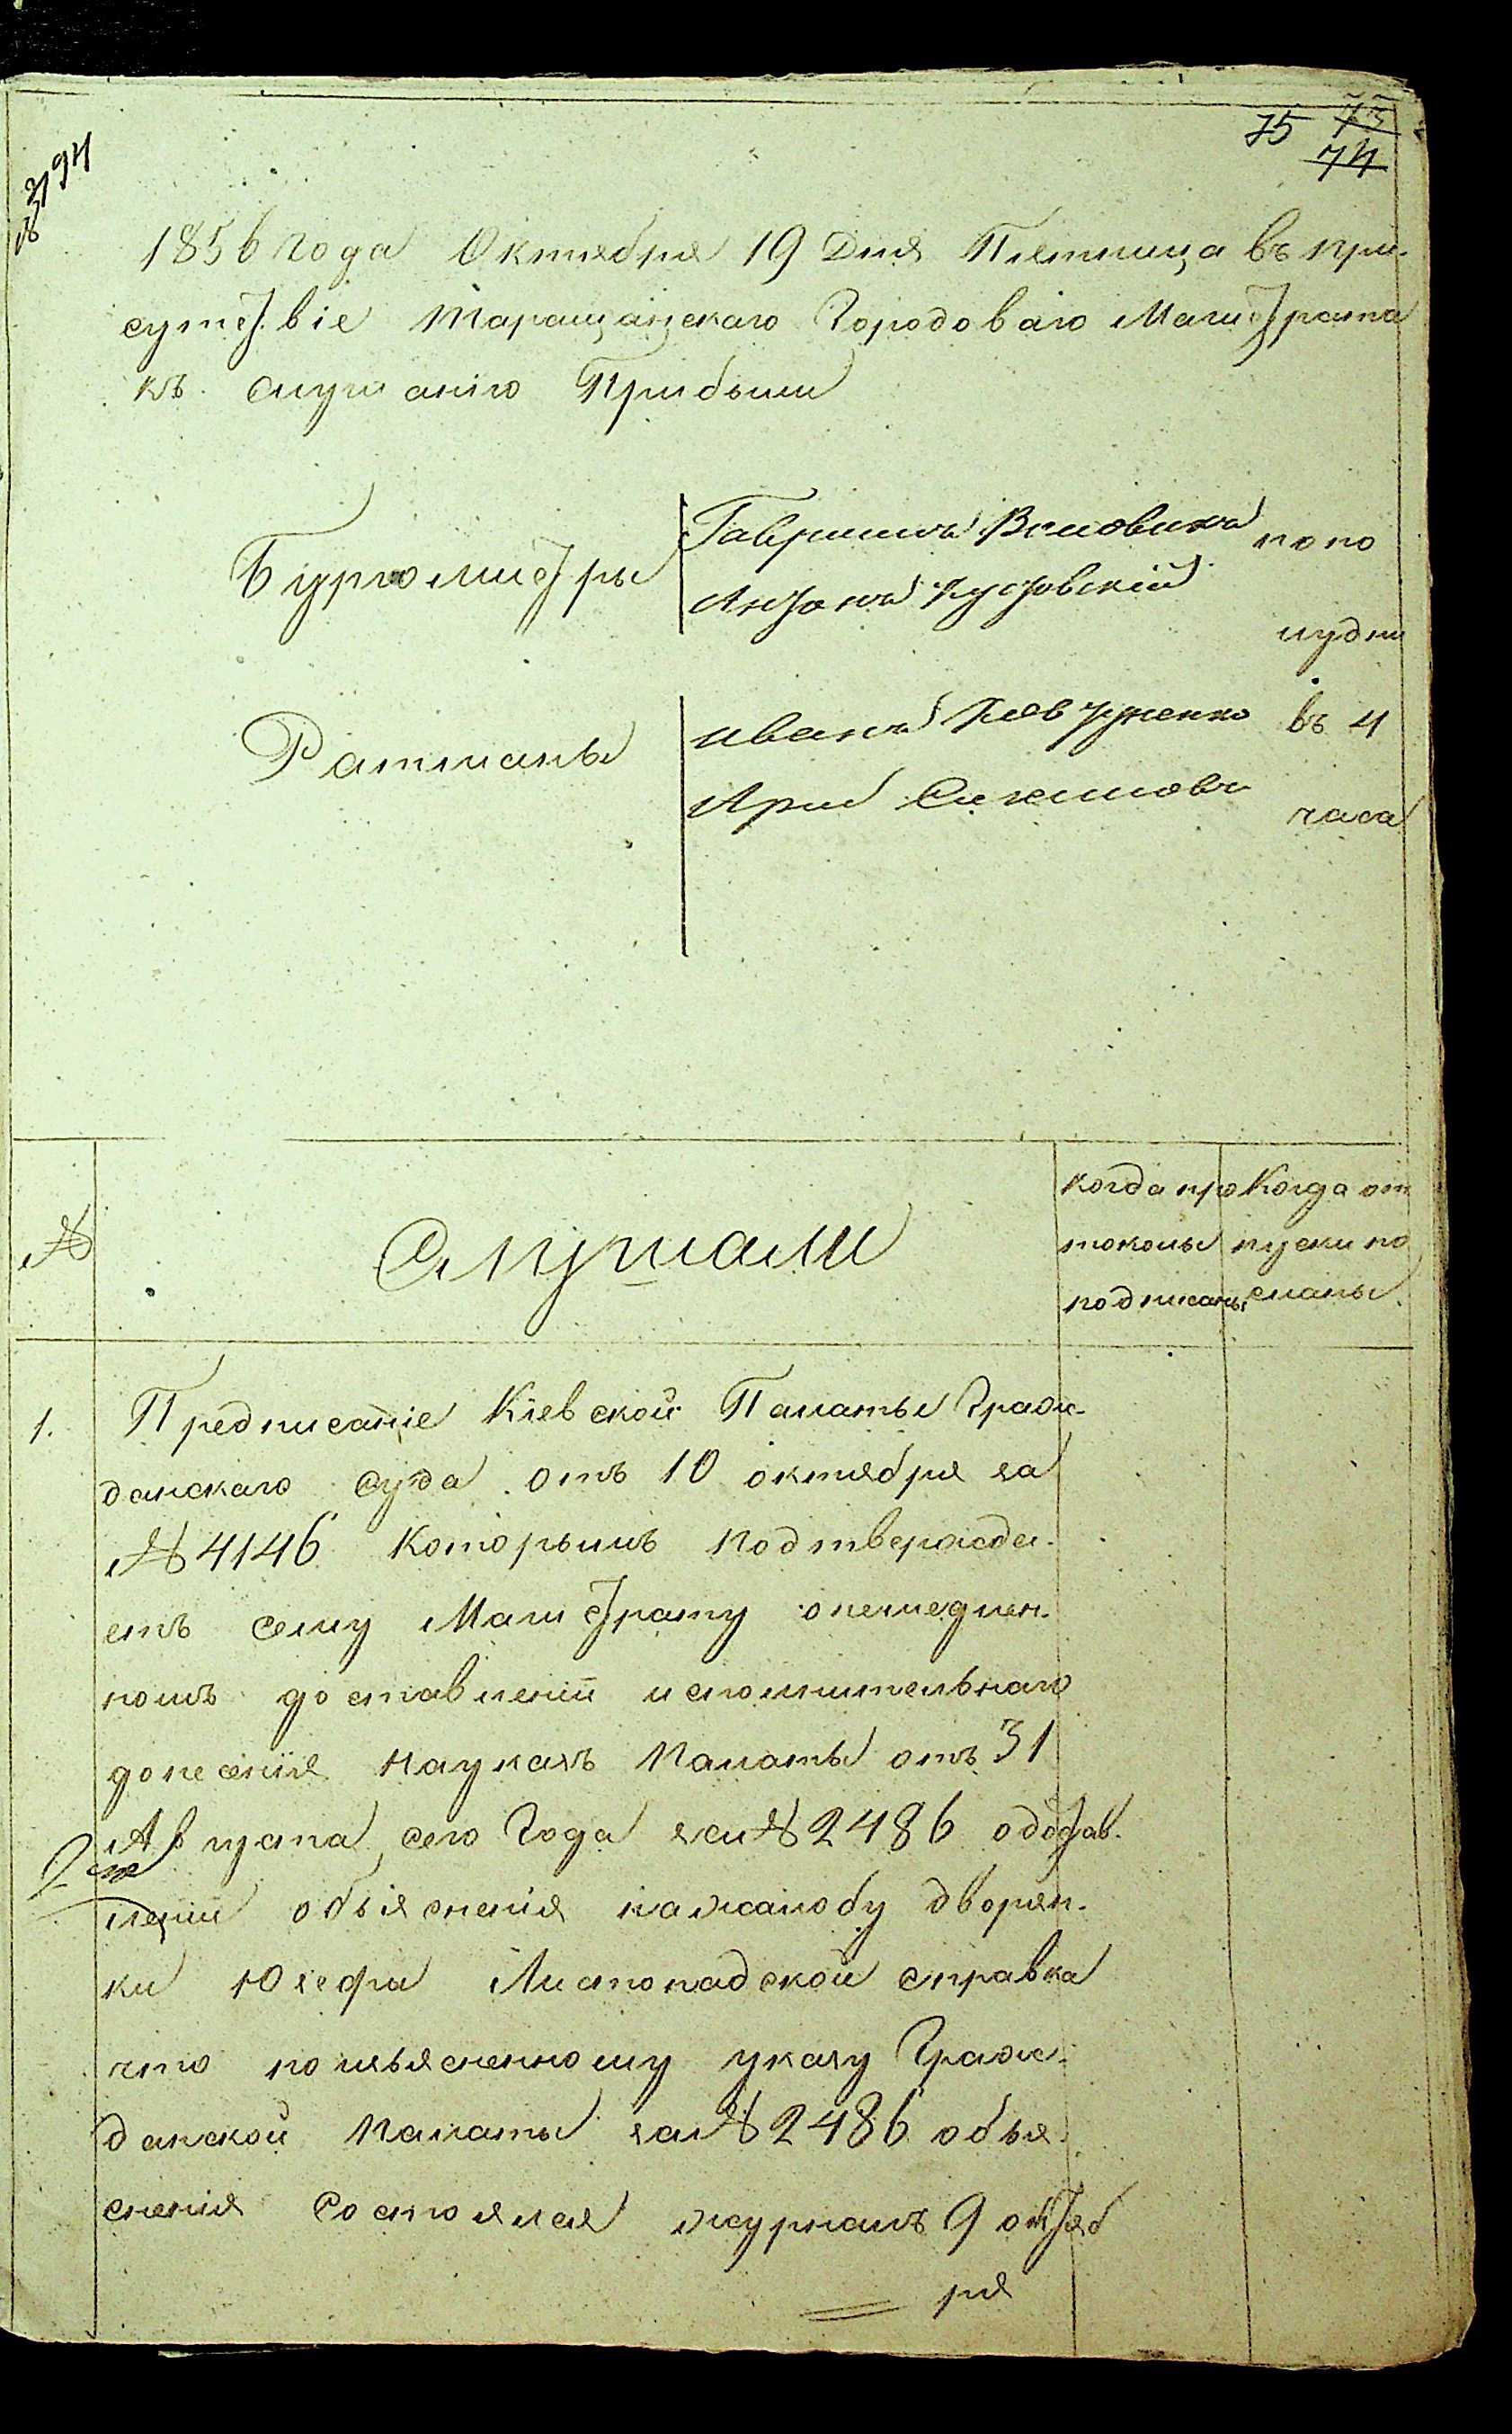 75 73
74
№ 3194
1856 года Октября 19 Дня Пятница въ при-
сутствіе Таращанскаго Городоваго Магистрата
къ слушанію Прибыли
Бургомистры
Гавріилъ
по по
Антонъ
лудни
Ратманы
Иванъ
въ 4
Арія
часа
№
Слушали
когда про
токолы
подписаны
Когда от
пуски по
сланы
1.
Предписаніе Кіевской Палаты Граж-
данскаго Суда отъ 10 октября за
№ 4146 Которымъ подтвержда-
етъ сему Магистрату онемедлен-
номъ доставленіи исполнительнаго
донесенія науказъ Палаты отъ 31
Августа сего Года за № 2486 одостав-
леніи объясненія нажалобу дворян-
ки Юзефы Листопадской справка
что поизъясненному указу Граж-
данской Палаты за № 2486 объя-
сненія Состоялся журналъ 9 октяб
ря